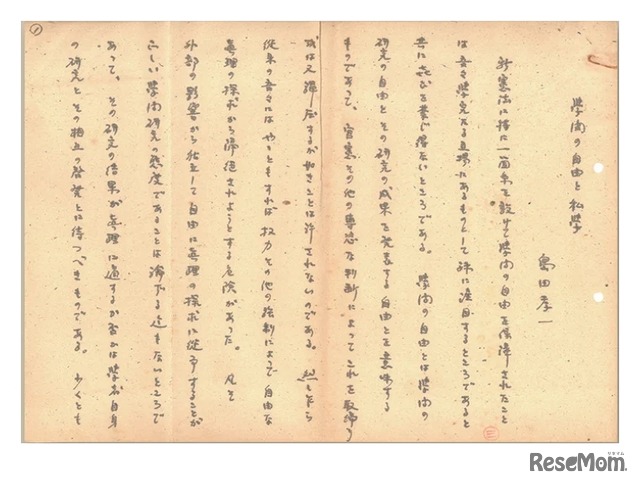 ①
学問の自由と私学
島田孝一
新憲法に特に一箇条を設けて学問の自由を保障されたこと
は吾々学究たる立場にあるものとして殊に注目するところであると
共に喜びを禁じ得ないところである。学問の自由とは学問の
研究の自由とその研究の成果を発表する自由とを意味する
ものであって、官憲その他の専恣な判断によってこれを取締り
或は又弾圧するが如きことは許されないのである。然し乍ら
従来の吾々にはやゝともすれば权力その他の強制によって自由な
真理の探求から帰迷されようとする危険があった。凡そ
外部の影響から独立して自由に真理の探求に従事することが
正しい学問研究の態度であることは論ずる迄もないところで
あって、その研究の結果が真理に適するか否かは学者自身
の研究とその相互の啓発とに待つべきものである。少くとも
三
ReseMom.
リセマム